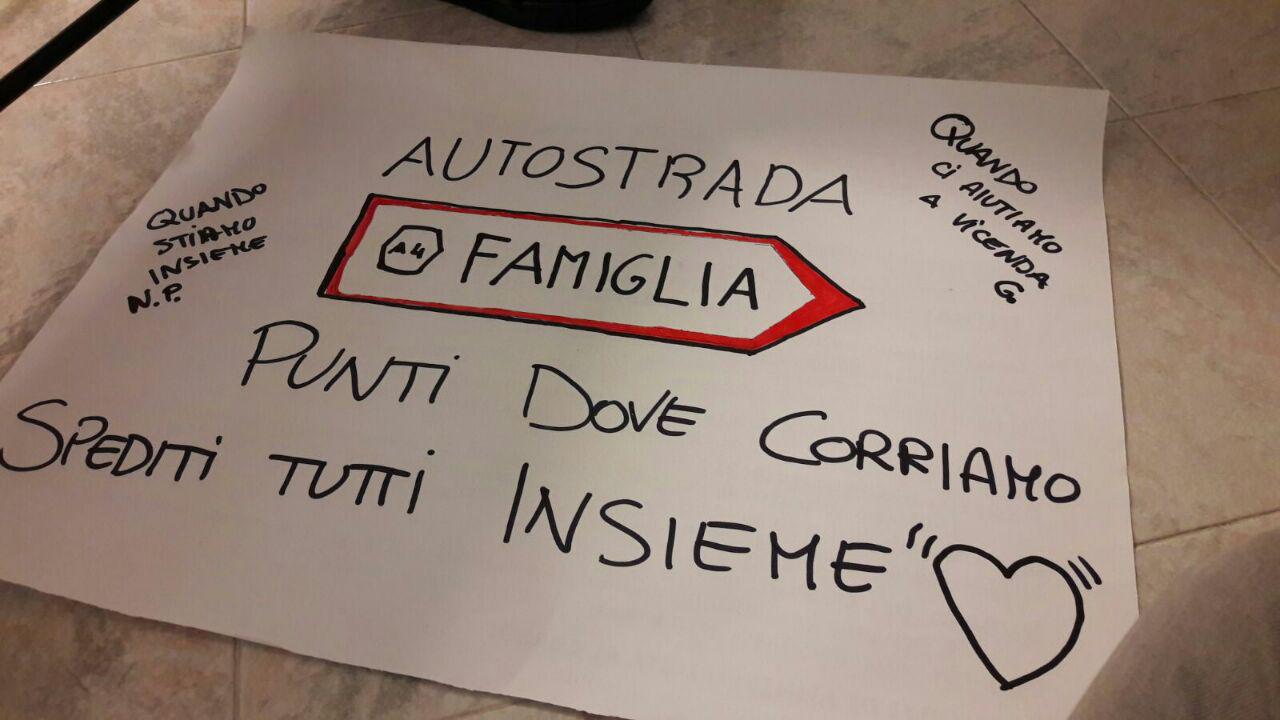 AUTOSTRADA
A4 FAMIGLIA
QUANDO
STIAMO
INSIEME
N.P.
QUANDO
Ci AIUTIAMO
A VICENDA
G.
PUNTi DOVE CORRIAMO
SPEDiTi TUTTi INSIEME